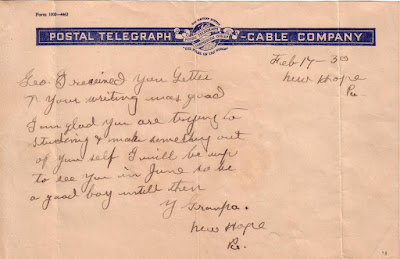 Form 1935-4463
POSTAL TELEGRAPH - CABLE COMPANY
Feb 17 - 30
New Hope
Pa.
Geo. I received your Letter
& your writing was good
I am glad you are trying to
studeing & make something out
of your self I will be up
to see you in June so be
a good boy untill then
Granpa.
New Hope
Pa.